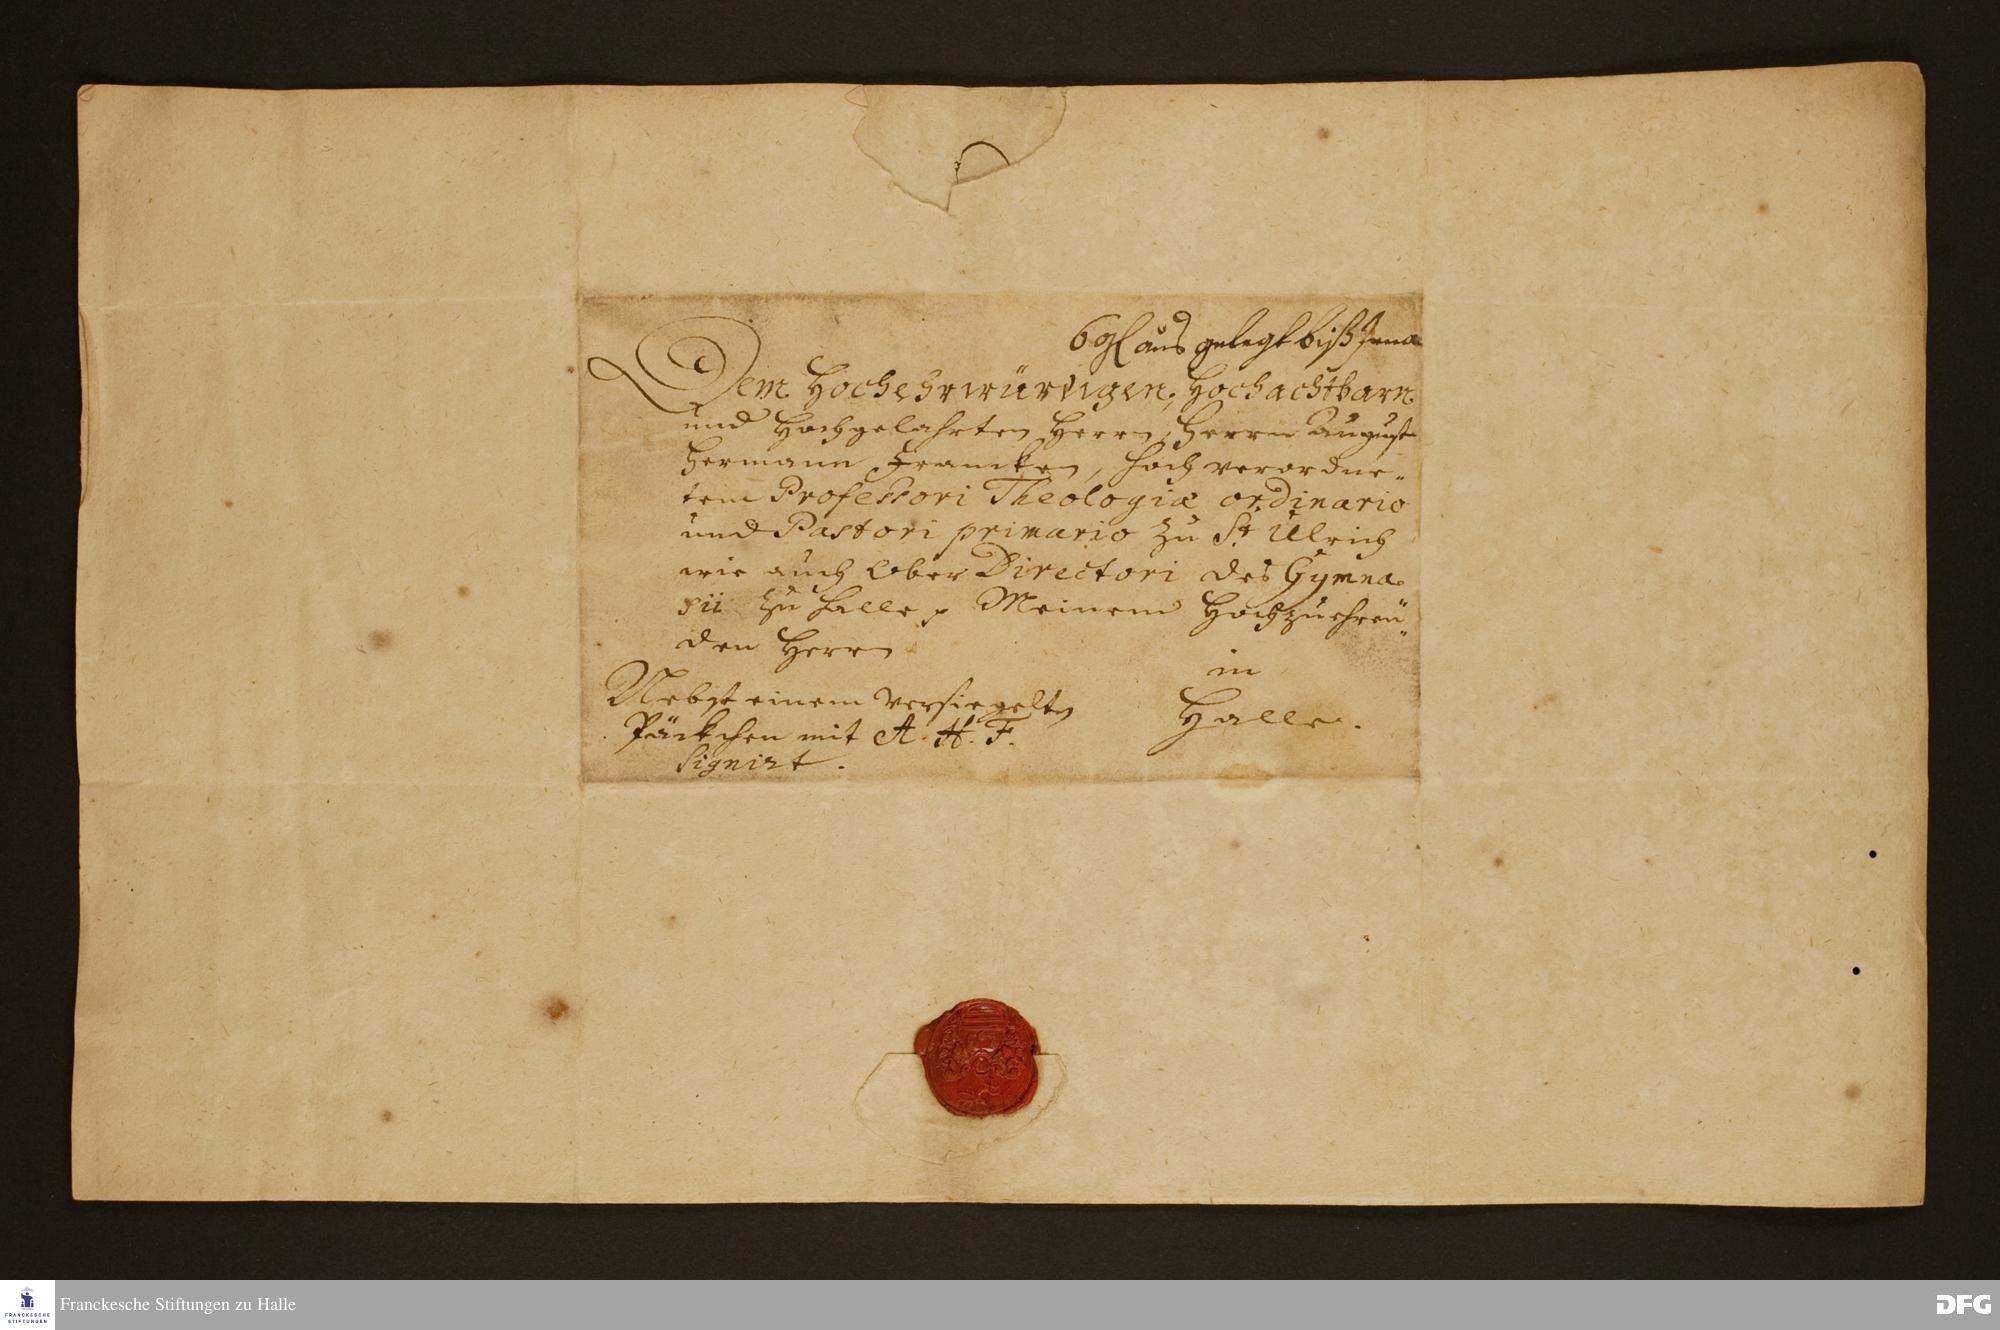 6 gl aus gelegt biß Jena
Dem HochEhrwürdigen, Hochachtbarn
und Hochgelahrten Herrn, Herrn August
Hermann Francken, hoch verordne„
tem Professori Theologiæ ordinario
und Pastori primario zu St. Ulrich
wie auch Ober Directori des Gymna„
sii zu Halle, Meinem Hochzuehren„
den Herrn
in
Halle.
Nebst einem versiegelten
Päckchen mit A. H. F.
Signirt.
FRANCKESCHE
STIFTUNGEN
Franckesche Stiftungen zu Halle
DFG